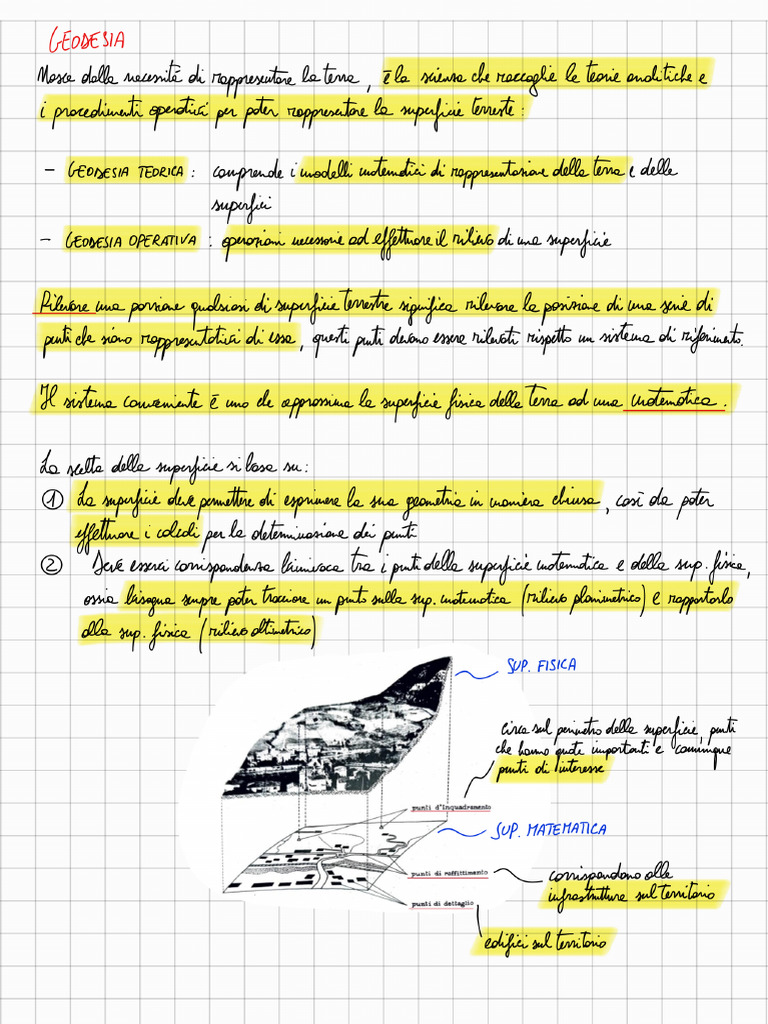 GEODESIA
Nasce dalla necessità di rappresentare la terra, è la scienza che raccoglie le teorie analitiche e
i procedimenti operativi per poter rappresentare la superficie terreste:
- GEODESIA TEORICA: comprende i modelli matematici di rappresentazione della terra e delle
superfici
- GEODESIA OPERATIVA: operazioni necessarie ad effettuare il rilievo di una superficie
Rilevare una porzione qualsiasi di superficie terrestre significa rilevare la posizione di una serie di
punti che siano rappresentativi di essa, questi punti devono essere rilevati rispetto un sistema di riferimento.
Il sistema conveniente è uno che approssima la superficie fisica della terra ad una matematica.
La scelta della superficie si basa su:
① La superficie deve permettere di esprimere la sua geometria in maniera chiusa, così da poter
effettuare i calcoli per la determinazione dei punti
② Deve esserci corrispondenza biunivoca tra i punti della superficie matematica e della sup. fisica,
ossia bisogna sempre poter tracciare un punto sulla sup. matematica (rilievo planimetrico) e rapportarlo
alla sup. fisica (rilievo altimetrico)
SUP. FISICA
Circa sul perimetro della superficie, punti
che hanno quote importanti e comunque
punti di interesse
punti d'inquadramento
SUP. MATEMATICA
punti di raffittimento
corrispondono alle
infrastrutture sul territorio
punti di dettaglio
edifici sul territorio